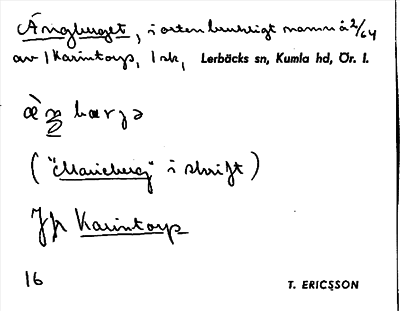 Ängberget, i orten brukligt namn å 2/64
av 1 Karintorp, 1 sk, Lerbäcks sn, Kumla hd, Ör. l.
bærjə
("Marieberg" i skrift)
Jfr Karintorp
16
T. ERICSSON